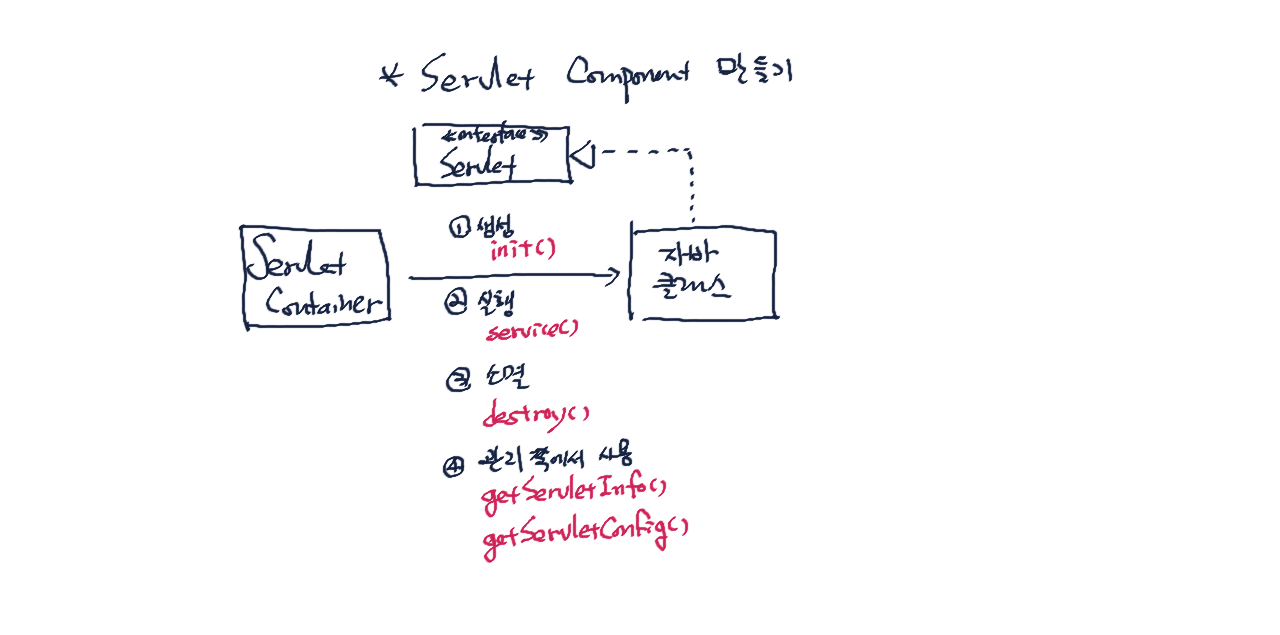 * Servlet Component 만들기
<<interface>>
Servlet
Servlet
Container
① 생성
init()
② 실행
service()
③ 소멸
destroy()
④ 관리 쪽에서 사용
getServletInfo()
getServletConfig()
자바
클래스